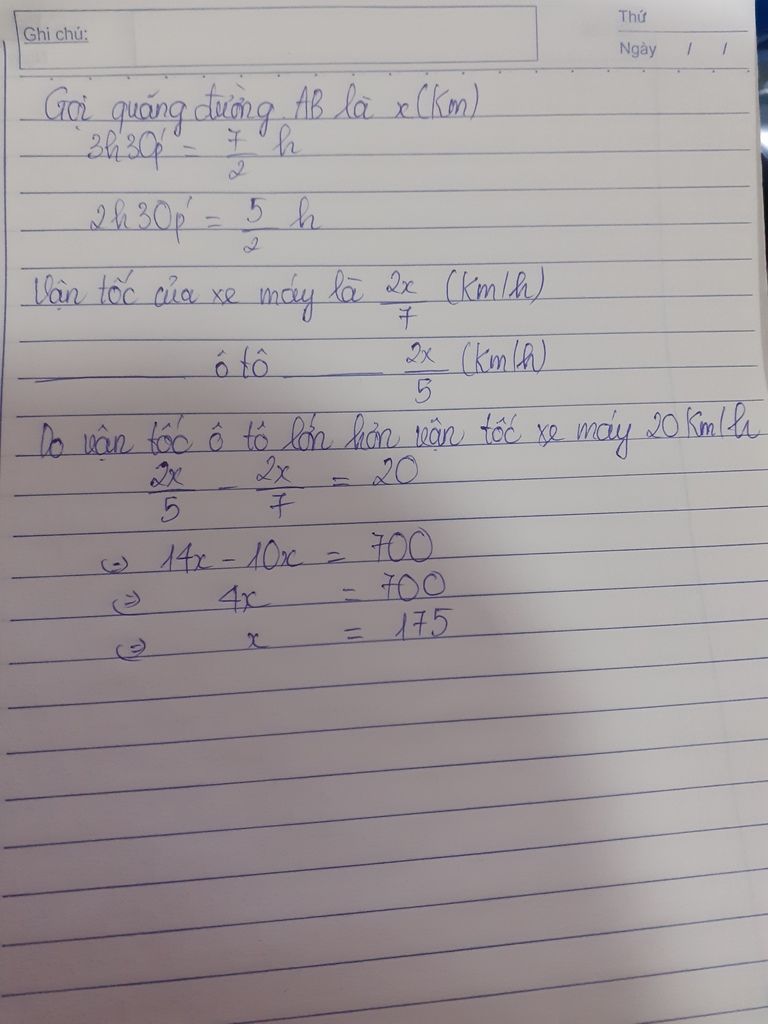 Ghi chú:
Thứ
Ngày / /
Gọi quãng đường AB là x(Km)
3h30p' = 7/2 h
2h30p' = 5/2 h
Vận tốc của xe máy là 2x/7 (Km/h)
ô tô 2x/5 (Km/h)
Do vận tốc ô tô lớn hơn vận tốc xe máy 20Km/h
2x/5 - 2x/7 = 20
(=) 14x - 10x = 700
(=) 4x = 700
(=) x = 175